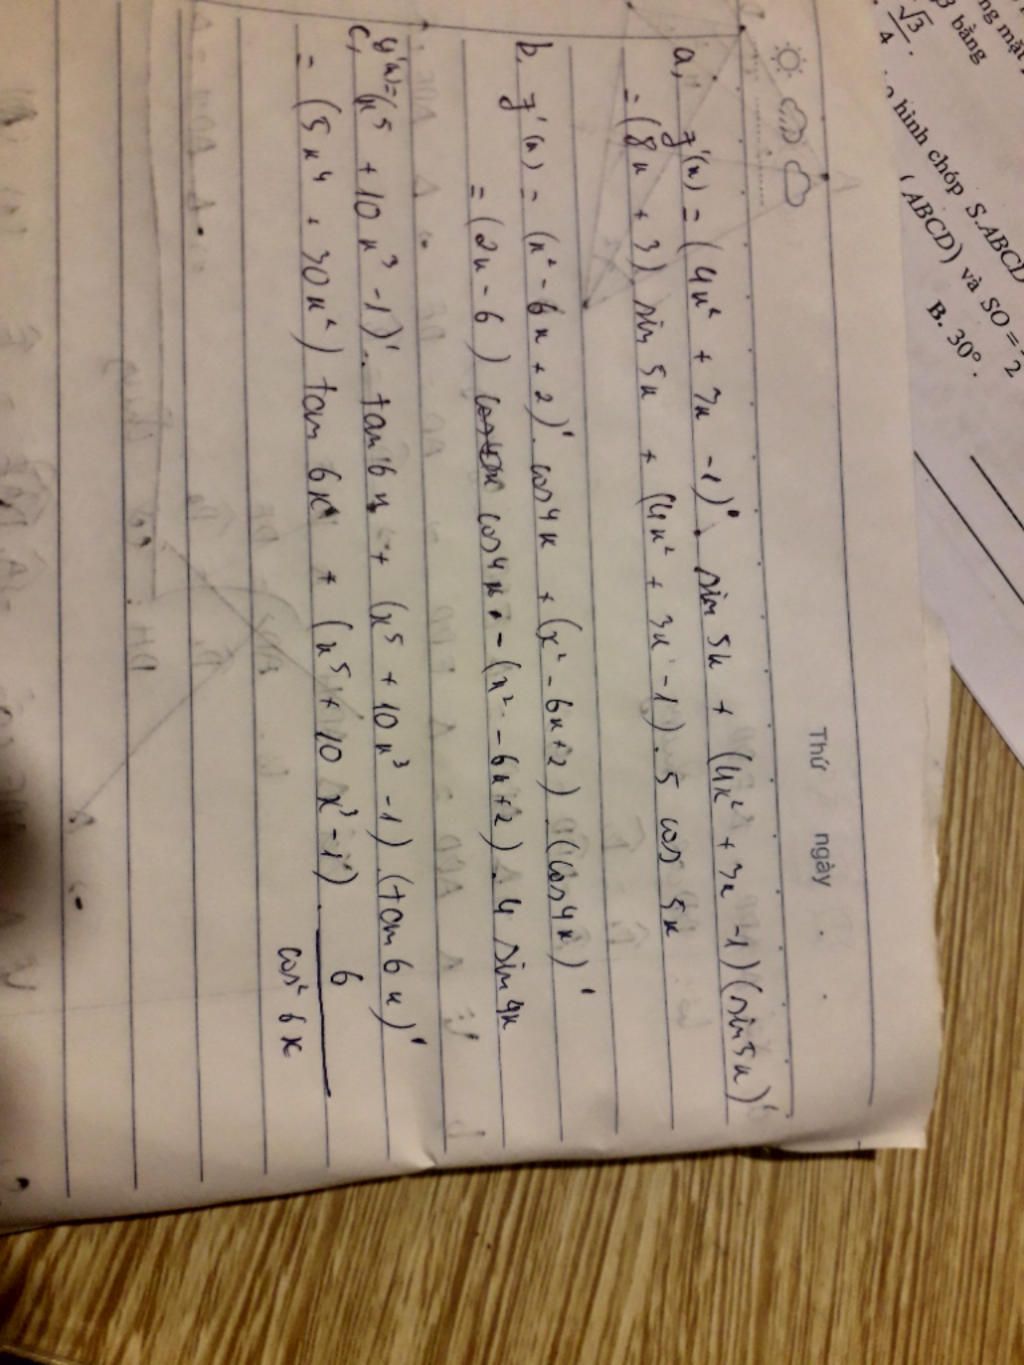 Thứ ngày
a, y'(x) = (4x² + 3x - 1)'. sin 5x + (4x² + 3x - 1)(sin5x)'
= (8x + 3) sin 5x + (4x² + 3x - 1). 5 cos 5x
b. y'(x) = (x² - 6x + 2)'. cos 4x + (x² - 6x + 2) (cos 4x)'
= (2x - 6) cos 4x - (x² - 6x + 2). 4 sin 4x
c, y'(x) = (x⁵ + 10x³ - 1)'. tan 6x + (x⁵ + 10x³ - 1) (tan 6x)'
= (5x⁴ + 30x²) tan 6x + (x⁵ + 10x³ - 1). 6
cos² 6x
bằng
√3
4
hình chóp S.ABCD
(ABCD) và SO =
2
B. 30°.